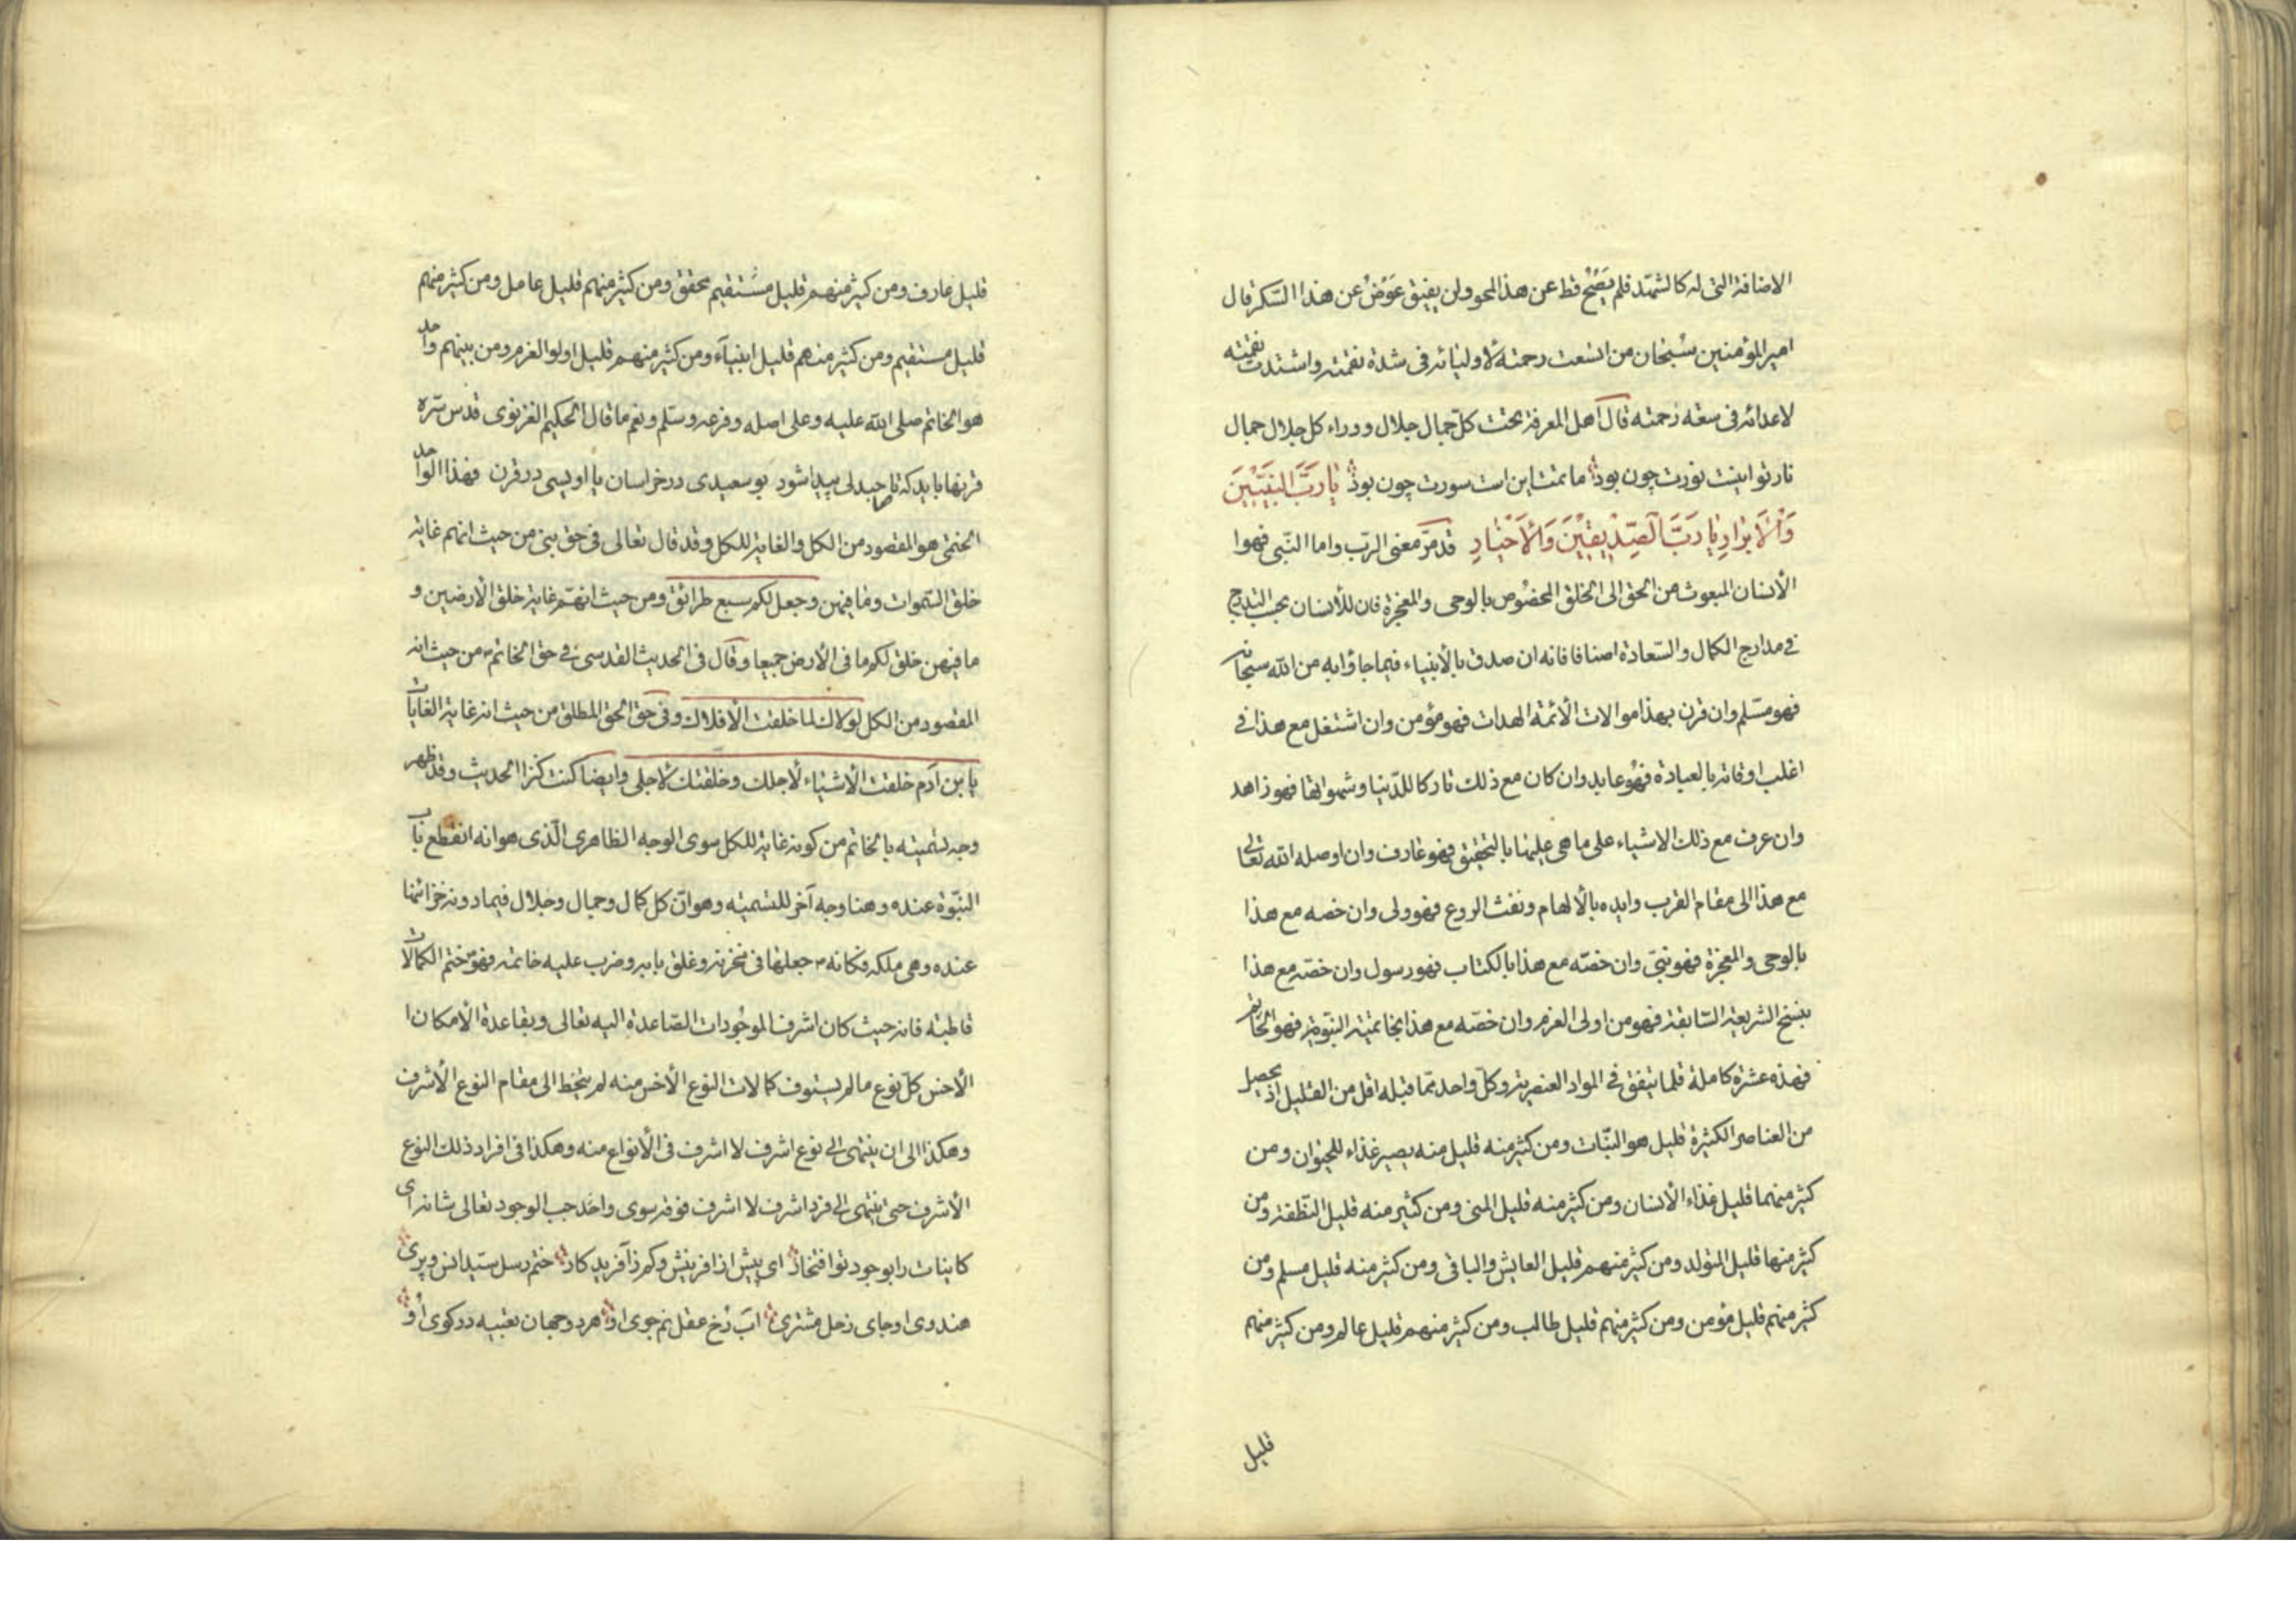 الاضافة التی له کالشمّد فلم یَصْحُ قط عن هذا المحو ولن یفیق عَوَضُ عن هذا السّکر قال
امیر المؤمنین سُبْحان من اتسعت رحمته لأولیائه فی شدة نقمته واشتدت نقمته
لاعدائه فی سعة رحمته قال اهل المعرفة تحت کلّ جمال جلال ووراء کل جلال جمال
نار تو اینست نورت چون بود ماتمت این است سورت چون بود یٰا رَبَّ النَّبِیّینَ
وَالْاَبْرٰارِ یٰا رَبَّ الصِّدّیقینَ وَالْاَخْیٰارِ قد مرّ معنی الربّ واما النّبی فهوا
الأنسان المبعوث من الحق الی الخلق المخصُوص بالوحی والمعجزة فان للأنسان بحسب التدرج
فی مدارج الکمال والسّعادة اصنافا فانه ان صدق بالأنبیاء فیما جاؤا به من الله سبحانه
فهو مسّلم وان قرن بهذا موالات الأئمة الهدات فهو مؤمن وان اشتغل مع هذا فی
اغلب اوقاته بالعبادة فهُو عابد وان کان مع ذلک تارکا للدّنیا وشهواتها فهو زاهد
وان عرف مع ذلک الاشیاء علی ما هی علیها بالتحقیق فهو عارف وان اوصله الله تعالی
مع هذا الی مقام القرب وایده بالألهام ونفث الروع فهو ولی وان خصه مع هذا
بالوحی والمعجزة فهو نبیّ وان خصّه مع هذا بالکتاب فهو رسول وان خصّه مع هذا
بنسخ الشریعة السّابقة فهو من اولی العزم وان خصّه مع هذا بخاتمیّة النبّوة فهو الخاتم
فهذه عشرة کاملة قلما یتفق فی المواد العنصریّة وکلّ واحد ممّا قبله اقل من القلیل اذ یحصل
من العناصر الکثیرة قلیل هو النبّات ومن کثیر منه قلیل منه یصیر غذاء للحیوان ومن
کثیر منهما قلیل غذاء الأنسان ومن کثیر منه قلیل المنی ومن کثیر منه قلیل النّطفة ومن
کثیر منها قلیل المتولد ومن کثیر منهم قلیل العایش والباقی ومن کثیر منه قلیل مسلم ومن
کثیر منهم قلیل مؤمن ومن کثیر منهم قلیل طالب ومن کثیر منهم قلیل عالم ومن کثیر منهم
قلیل
قلیل عارف ومن کثیر منهم قلیل مسُتقیم محقق ومن کثیر منهم قلیل عامل ومن کثیر منهم
قلیل مستقیم ومن کثیر منهم قلیل انبیآء ومن کثیر منهم قلیل اولوا العزم ومن بینهم واحد
هو الخاتم صلی الله علیه وعلی اصله وفرعه وسّلم ونعم ما قال الحکیم الغزنوی قدّس سّره
قرنها باید که تا صاحبدلی پیدا شود بو سعیدی در خراسان یا اویسی در قرن فهذا الواحد
الختمی هو المقصود من الکل والغایة للکل وقد قال تعالی فی حق بنی من حیث انهم غایة
خلق السّموات وما فیهن وجعل لکم سبع طرائق ومن حیث انهم غایة خلق الأرضین و
ما فیهن خلق لکم ما فی الأرض جمیعا وقال فی الحدیث القدسی فی حق الخاتم ص من حیث انه
المقصود من الکل لولاک لما خلقت الأفلاک وفی حق الحق المطلق من حیث انه غایة الغایات
یا بن آدم خلقت الأشیاء لأجلک وخلقتک لأجلی وایضا کنت کنزا الحدیث وقد ظهر
وجه تسمیته بالخاتم من کونه غایة للکل سوی الوجه الظاهری الّذی هو انه انقطع باب
النبّوة عنده وهنا وجه آخر للتسمیة وهو انّ کل کمال وجمال وجلال فیما دونه خزائنها
عنده وهی ملکه فکانه ص جعلها فی مخزنه وغلق بابه وضرب علیه خاتمه فهو ختم الکمالات
قاطبته فانه حیث کان اشرف الموجُودات الصّاعدة الیه تعالی وبقاعدة الأمکان ا
الأخس کلّ نوع ما لم یستوف کمالات النوع الأخس منه لم یتخط الی مقام النوع الأشرف
وهکذا الی ان ینتهی الی نوع اشرف لا اشرف فی الأنواع منه وهکذا فی افراد ذلک النوع
الأشرف حتی ینتهی الی فرد اشرف لا اشرف فوقه سوی واجب الوجود تعالی شانه ای
کاینات را بوجود تو افتخار ای بیش از آفرینش وکم ز آفریدکار ختم رسل سّید انس وپری
هندوی او جای زحل مشتری آب رخ عقل نم جوی او هر دو جهان تعبیه در کوی او